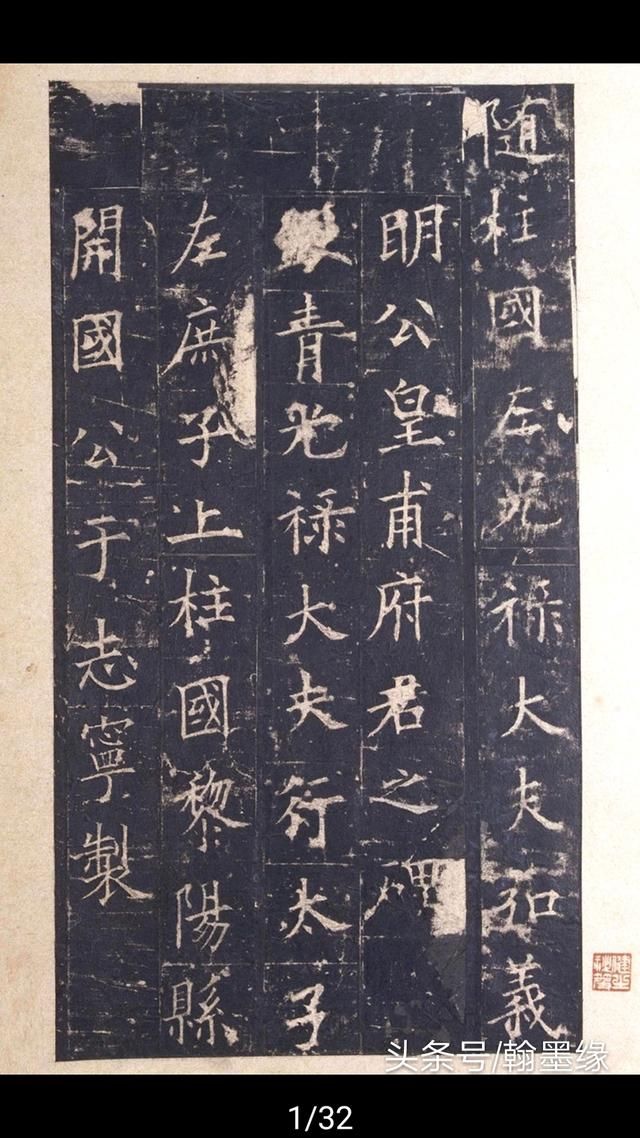 随柱國左光禄大夫弘義
明公皇甫府君之碑
銀青光禄大夫行太子
左庶子上柱國黎陽縣
開國公于志寧製
头条号/翰墨缘
1/32